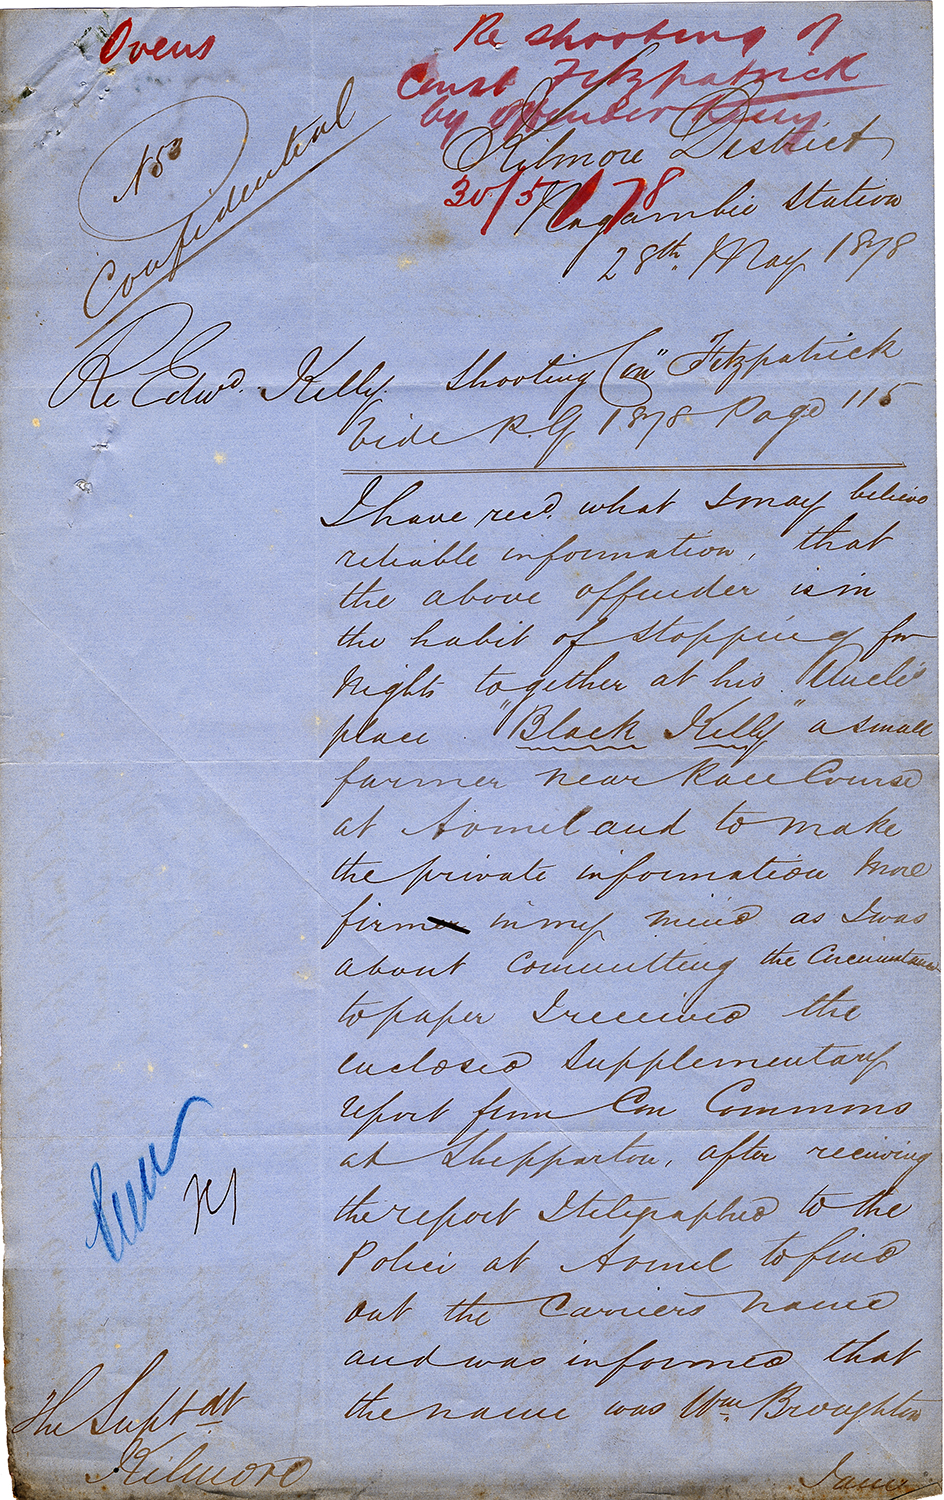 Ovens
Re shooting of
Const Fitzpatrick
by Offender Kelly
Confidential
Kilmore District
30/5/78
Nagambie Station
28th May 1878
Re Edwd. Kelly. Shooting Con Fitzpatrick
Vide P.G 1878 Page 115
I have recd. what I may believe
reliable information, that
the above offender is in
the habit of stopping for
Nights together at his Uncle's
place "Black Kelly" a small
farmer near Race Course
at Avenel and to make
the private information more
firm in my mind as I was
about committing the Circumstances
to paper I received the
enclosed Supplementary
report from Con Commons
at Shepparton, after receiving
the report I telegraphed to the
Police at Avenel to find
out the Carriers name
and was informed that
the name was Wm Broughton
The Supt at
Kilmore